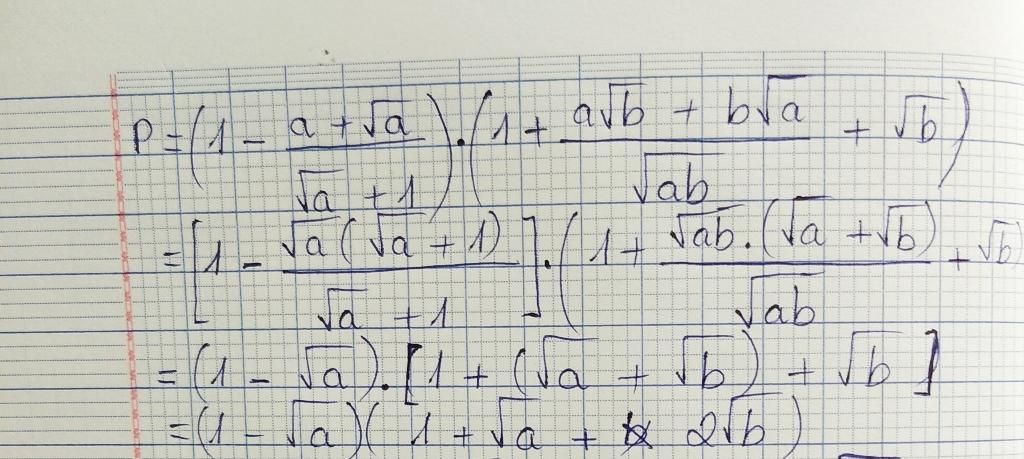 P = (1 - \frac{a + \sqrt{a}}{\sqrt{a} + 1}) . (1 + \frac{a\sqrt{b} + b\sqrt{a}}{\sqrt{ab}} + \sqrt{b})
= [1 - \frac{\sqrt{a}(\sqrt{a} + 1)}{\sqrt{a} + 1}] . (1 + \frac{\sqrt{ab} . (\sqrt{a} + \sqrt{b})}{\sqrt{ab}} + \sqrt{b})
= (1 - \sqrt{a}) . [1 + (\sqrt{a} + \sqrt{b}) + \sqrt{b}]
= (1 - \sqrt{a})(1 + \sqrt{a} + 2\sqrt{b})